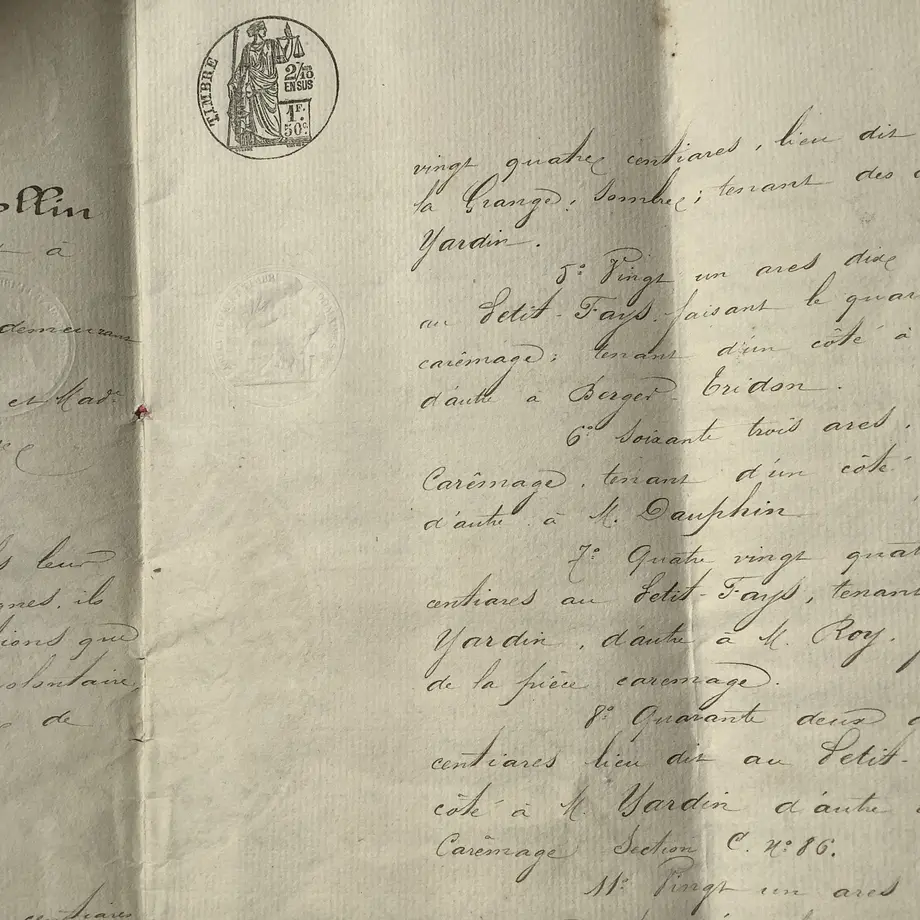 ollin
à
demeurant
et Mad.
s leur
gnes, ils
tions que
volontaire,
de
centiares
TIMBRE
2/10
EN SUS
1F.
50c.
vingt quatre centiares, lieu dit
la Grange, Sombre; tenant des
Yardin.
5° Vingt un ares dix
au Petit-Fays, faisant le quar
carêmage; tenant d'un côté à
d'autre à Berger-Tridon.
6° Soixante trois ares,
Carêmage, tenant d'un côté
d'autre à M. Dauphin
7° Quatre vingt quat
centiares au Petit-Fays, tenant
Yardin, d'autre à M. Roy.
de la pièce carêmage.
8° Quarante deux
centiares lieu dit au Petit-
côté à M. Yardin d'autre
Carêmage Section C. N° 86.
11° Vingt un ares